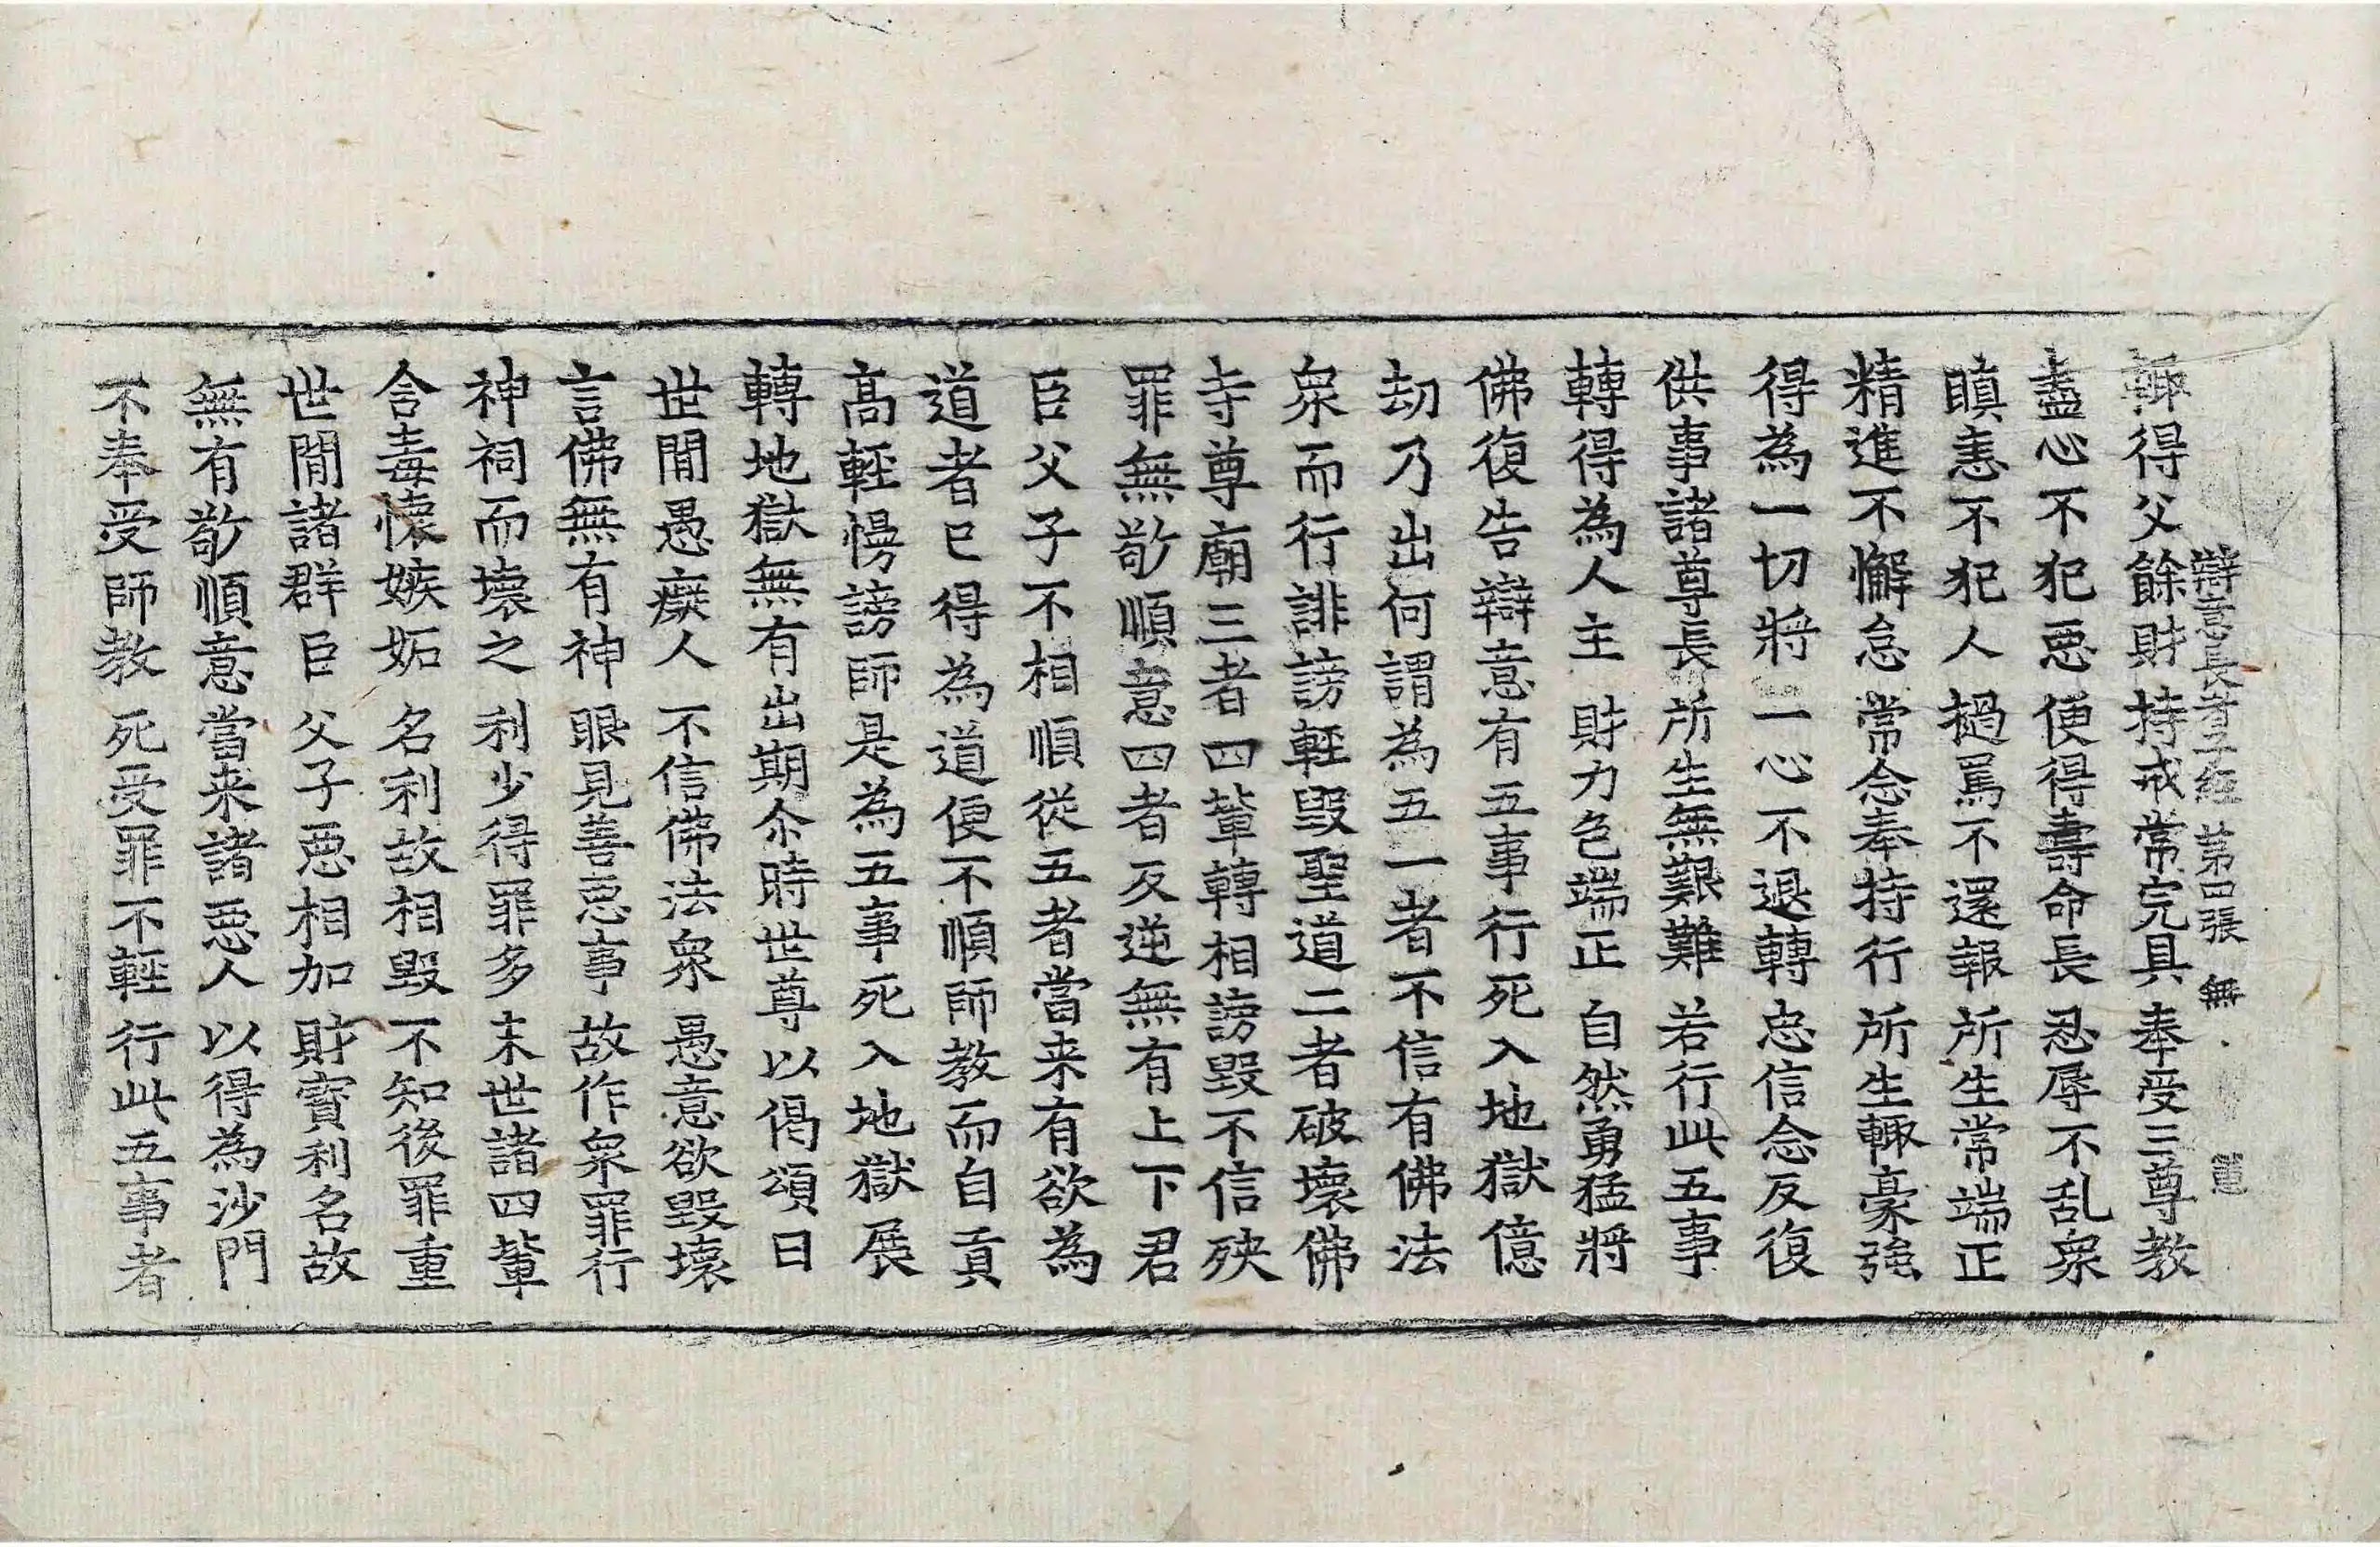 辯意長者子經　第四張　無
輙得父餘財　持戒常完具　奉受三尊教
盡心不犯惡　便得壽命長　忍辱不乱衆
瞋恚不犯人　撾罵不還報　所生常端正
精進不懈怠　常念奉持行　所生輙豪強
得為一切將　一心不退轉　忠信念反復
供事諸尊長　所生無艱難　若行此五事
轉得為人主　財力色端正　自然勇猛將
佛復告辯意有五事行死入地獄億
劫乃出何謂為五一者不信有佛法
衆而行誹謗輕毀聖道二者破壞佛
寺尊廟三者四輩轉相謗毀不信殃
罪無敬順意四者反逆無有上下君
臣父子不相順從五者當来有欲為
道者已得為道便不順師教而自貢
高輕慢謗師是為五事死入地獄展
轉地獄無有出期尒時世尊以偈頌曰
世閒愚癡人　不信佛法衆　愚意欲毀壞
言佛無有神　眼見善惡事　故作衆罪行
神祠而壞之　利少得罪多　末世諸四輩
含毒懷嫉妬　名利故相毀　不知後罪重
世閒諸群臣　父子惡相加　財寶利名故
無有敬順意　當来諸惡人　以得為沙門
不奉受師教　死受罪不輕　行此五事者